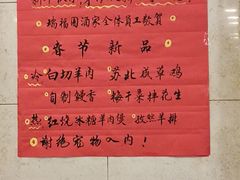 瑞福园酒家全体员工敬贺
春节新品
冷 白切羊肉 苏北咸草鸡
自制鳗香 梅干菜拌花生
热 红烧米糖羊肉煲 孜然羊排
谢绝宠物入内!